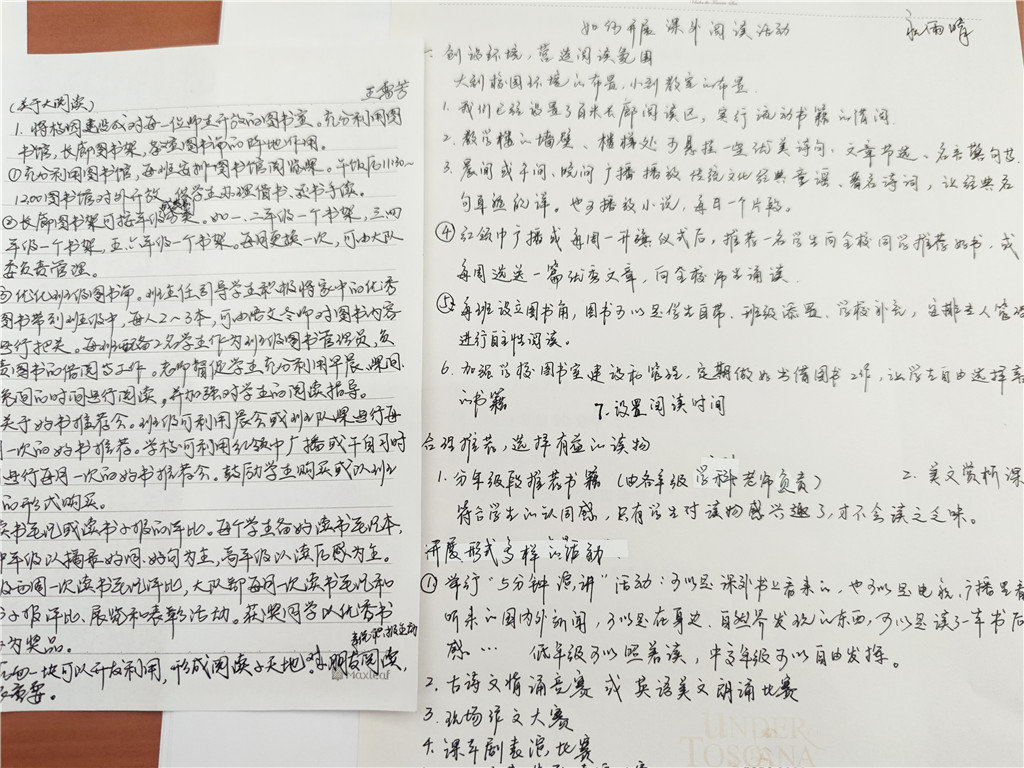 (关于大阅读)
1. 将校园建设成对每一位师生开放的图书室。充分利用图
书馆,长廊图书架,各读图书角的阵地作用。
①充分利用图书馆,每班安排图书馆阅读课。午饭后11:30~
12:00图书馆对外开放,供学生办理借书、还书手续。
②长廊图书架可按年级分类。如一、二年级一个书架,三四
年级一个书架,五六年级一个书架。每月更换一次,可由大队
委负责管理。
③优化班级图书角。班主任引导学生积极将家中的优秀
图书带到班级中,每人2~3本,可由语文老师对图书内容
进行把关。每班配备2名学生作为班级图书管理员,负
责图书的借阅等工作。老师督促学生充分利用早晨、课间
的时间进行阅读,并加强对学生的阅读指导。
关于好书推荐会。班级可利用晨会或班队课进行每
一次的好书推荐。学校可利用红领中广播或午自习时
进行每月一次的好书推荐会。鼓励学生购买或以班
的形式购买。
读书笔记或读书小报的评比。每个学生备好读书笔记本,
中年级以摘录好词、好句为主,高年级以读后感为主。
两周一次读书笔记评比,大队部每月一次读书笔记和
小报评比、展览和表彰活动。获奖同学以优秀书
为奖品。
一块可以开发利用,形成阅读小天地。
Maxleaf
如何开展课外阅读活动
一. 创设环境,营造阅读氛围
大到校园环境的布置,小到教室的布置.
1. 我们已经设置了百米长廊阅读区,实行流动书籍的借阅.
2. 教学楼的墙壁、楼梯处可悬挂一些优美诗句、文章节选、名言警句等.
3. 晨间或午间、晚间广播播放传统文化经典童谣、著名诗词,让经典名
句耳熟能详。也可播放小说,每日一个片段。
④ 红领巾广播或每周一升旗仪式后,推荐一名学生向全校同学推荐好书.或
每周选送一篇优秀文章,向全校师生诵读.
⑤ 每班设立图书角,图书可以是学生自带、班级添置、学校补充,安排专人管理
进行自主性阅读。
6. 加强学校图书室建设和管理,定期做好出借图书工作,让学生自由选择喜
的书籍
7. 设置阅读时间
合理推荐,选择有益的读物
1. 分年级段推荐书籍(由各年级学科老师负责)
2. 美文赏析课
符合学生的认同感,只有学生对读物感兴趣了,才不会读之乏味。
开展形式多样的活动
① 举行“5分钟演讲”活动:可以是课外书上看来的,也可以是电视、广播里看
听来的国内外新闻,可以是在身边、自然界发现的东西,可以是读了一本书后
感… 低年级可以照着读,中高年级可以自由发挥。
2. 古诗文情诵竞赛或英语美文朗诵比赛
3. 现场作文大赛
4. 课本剧表演比赛
UNDER
TOSCANA